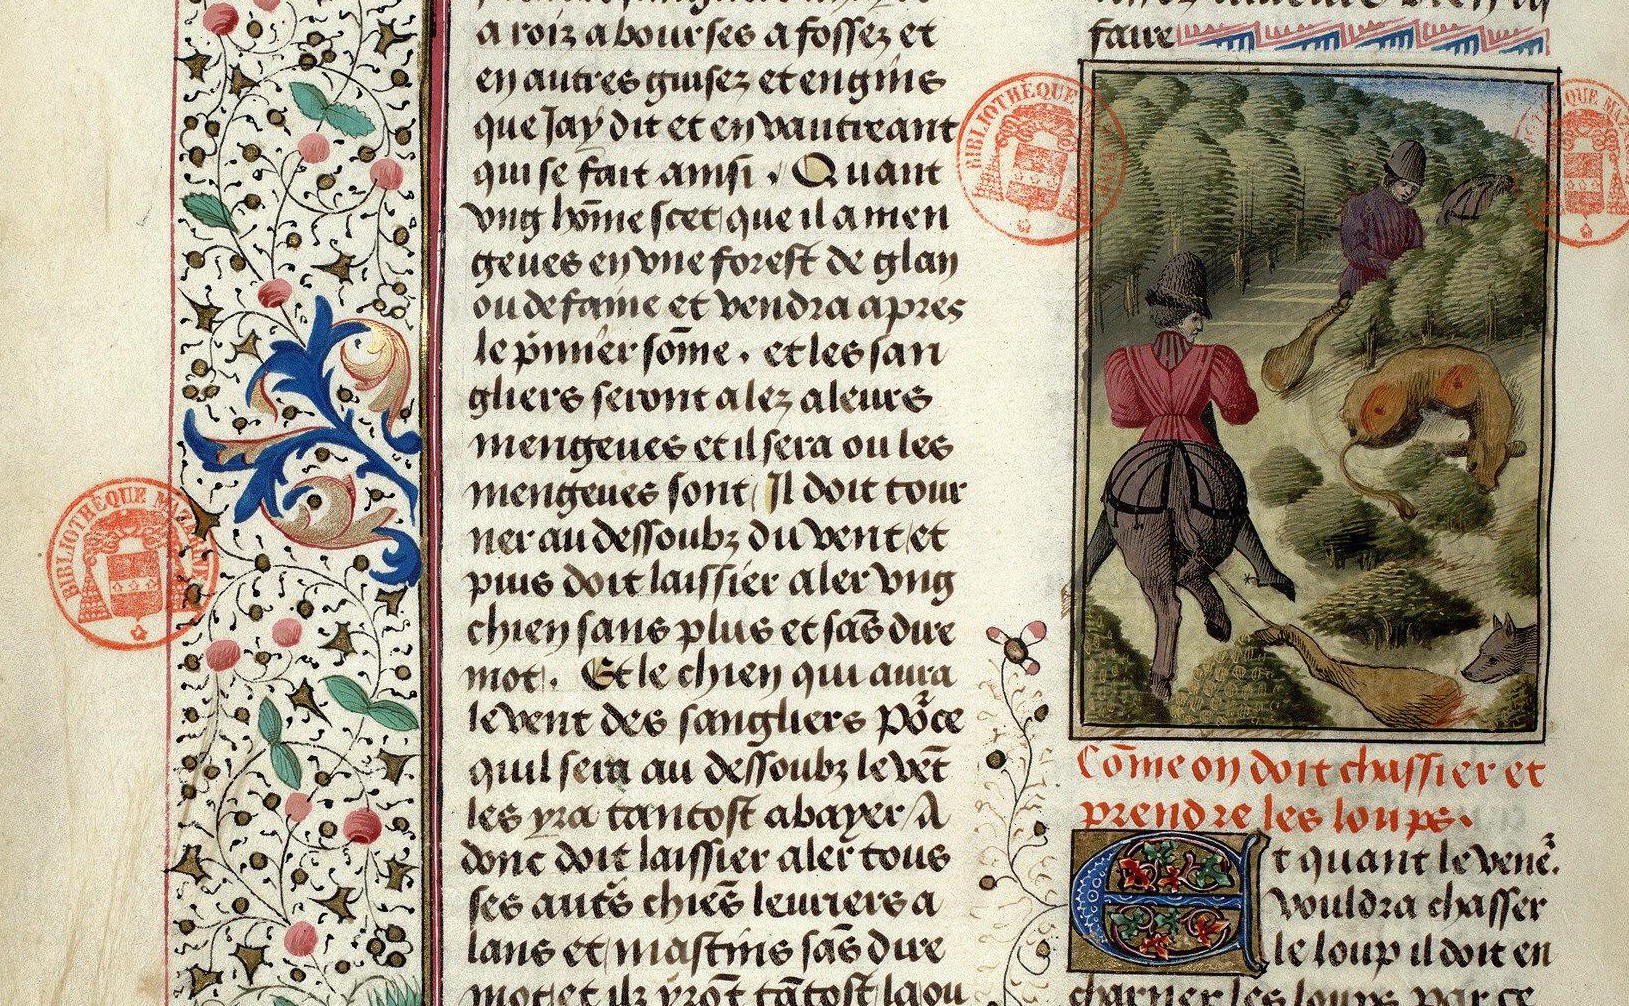 a roiz a bourses a fossez et
en autres guisez et engins
que Jay dit et en vautreant
qui se fait ainsi. Quant
vng hōme scet que il a men
geues en vne forest de glan
ou de faine et vendra apres
le p̄mier sōme. et les san
gliers seront alez a leurs
mengeues et il sera ou les
mengeues sont Il doit tour
ner au dessoubz du vent et
puis doit laissier aler vng
chien sans plus et sās dire
mot. Et le chien qui aura
le vent des sangliers pōce
quil sera au dessoubz le vēt
les yra tantost abayer / A
donc doit laissier aler tous
ses aut͛s chiēs leuriers a
lans et mastins sās dire
mot et ilz yrōt tātost la ou
faire
Cōme on doit chassier et
prendre les loups.
Et quant le vene͛.
vouldra chasser
le loup il doit en
charner les loups par ce
BIBLIOTHÈQUE
BIBLIOTHÈQUE MAZARINE